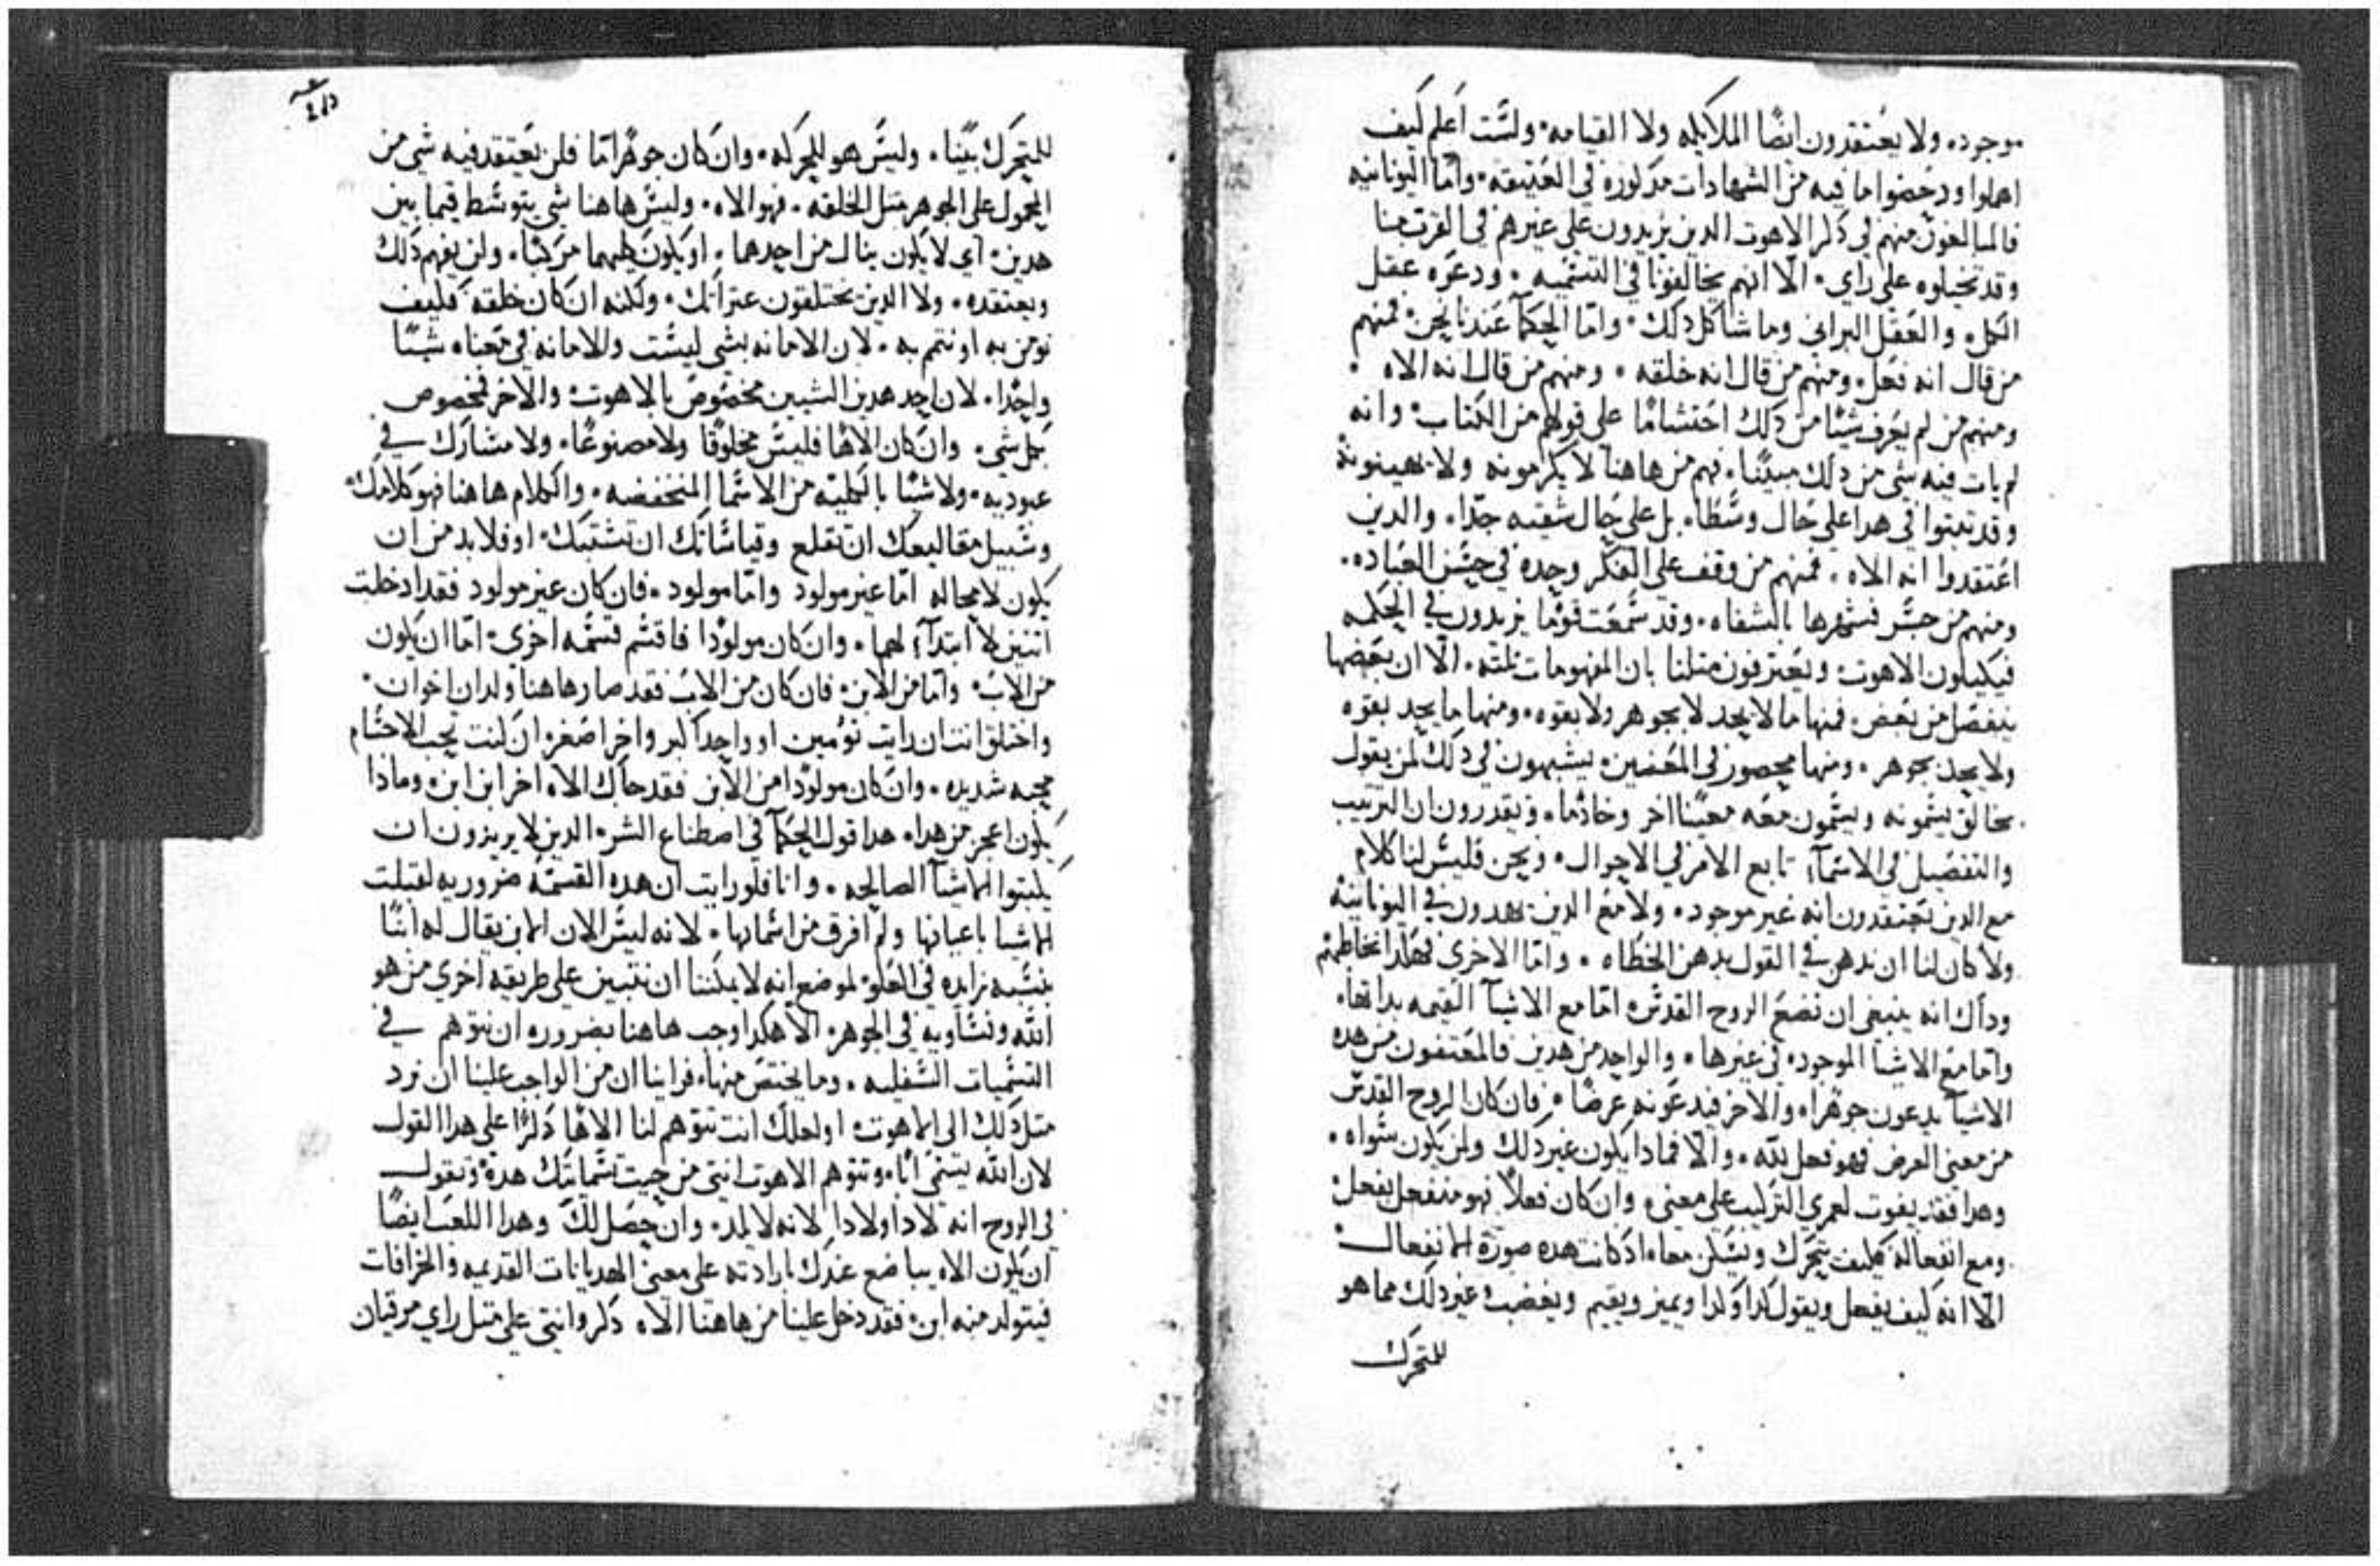 موجوده ولا يعتقدون ايضًا الملايكه ولا القيامه ولست اعلم كيف
اهملوا ودحضوا ما فيه من الشهادات مدكوره في العتيقه واما اليونانيه
فالمبالغون منهم في دكر الاهوت الدين يزيدون علي غيرهم في القرب منا
وقد تخيلوه علي راي الا انهم يخالفونا في التسميه ودعوه عقل
الكل والعقل البراني وما شاكل دلك واما الحكمآ عندنا نحن فمنهم
من قال انه فعل ومنهم من قال انه خلقه ومنهم من قال انه الاه
ومنهم من لم يعرف شيئًا من دلك احتشامًا علي قولهم من الكتاب وانه
لم يات فيه شي من دلك مبينًا فهم من هاهنا لا يكرمونه ولا يهينونه
وقد تبتوا في هدا علي حال وسطا بل علي حال شقيه جدًا والدين
اعتقدوا انه الاه فمنهم من وقف علي الفكر وحده في حسن العباده
ومنهم من جسر فشهرها بالشفاه وقد سمعت قومًا يزيدون في الحكمه
فيكيلون الاهوت ويعترفون متلنا بان المفهومات تلته الا ان بعضها
ينفصل من بعض فمنها ما لا يحد لا بجوهر ولا بقوه ومنها ما يحد بقوه
ولا يحد بجوهر ومنها محصور في المعنيين يشبهون في دلك لمن يقول
بخالق يسمونه ويسمون معه معينًا اخر وخادمًا ويقدرون ان الترتيب
والتفصيل في الاسمآ تابع الامر في الاحوال ونحن فليس لنا كلام
مع الدين يعتقدون انه غير موجود ولا مع الدين يهدون في اليونانيه
ولا كان لنا ان ندهن في القول بدهن الخطاه واما الاخري فهكدا نخاطبهم
وداك انه ينبغي ان نضع الروح القدس اما مع الاشيآ القيمه بداتها
واما مع الاشيا الموجوده في غيرها والواحد من هدين فالمعتنفون من هده
الاشيآ يدعون جوهرا والاخر فيدعونه عرضًا فان كان الروح القدس
من معني العرض فهو فعل لله والا فمادا يكون غير دلك ولمن يكون سواه
وهدا فقد يفوت لعمري التركيب علي معني وان كان فعلًا فهو منفعل يفعل
ومع انفعاله فكيف يتحرك ويسكن معا اد كانت هده صورة الانفعال
الا انه كيف يفعل ويقول كدا وكدا ويميز ويقيم ويغضب غير دلك مما هو
للمتحرك
للمتحرك بينًا وليس هو للحركه وان كان جوهرًا ما فلن يعتقد فيه شي من
المحمول علي الجوهر متل الخلقه فهو الاه وليس هاهنا شي يتوسط فيما بين
هدين اي لا يكون ينال من احدهما او يكون كليهما مركبًا ولن يفهم دلك
ويعتقده ولا الدين يختلقون عنز ايل ولكنه ان كان خلقه فكيف
نومن به او نتم به لان الامانه بشي ليست والامانه في معناه شيئًا
واحدًا لان احد هدين الشيين مخصوص بالاهوت والاخر فمخصوص
بكل شي وان كان الاهًا فليس مخلوقًا ولا مصنوعًا ولا مشارك في
عبوديه ولا شيئًا بالكليه من الاسما المنخفضه والكلام هاهنا فهو كلامك
وسبيل مقاليعك ان تقلع وقياساتك ان تشتبك اوفلا بد من ان
يكون لا محاله اما غير مولود واما مولود فان كان غير مولود فقد ادخلت
اتنين لا ابتدآ لهما وان كان مولودًا فاقسم قسمه اخري اما ان يكون
من الاب واما من الابن فان كان من الاب فقد صار هاهنا ولدان اخوان
واختلق انت ان رايت تومين او واحدًا اكبر واخر اصغر ان كنت تحب الاجسام
محبه شديده وان كان مولودًا من الابن فقد جاك الاه اخر ابن ابن ومادا
يكون اعجز من هدا هدا قول الحكمآ في اصطناع الشر الدين لا يريدون ان
يكتبوا الاشيآ الصالحه وانا فلو رايت ان هده القسمه ضروريه لقبلت
الاشيا باعيانها ولم افرق من اسمايها لانه ليس الان الابن يقال له ابنًا
بنسبه زايده في العلو لموضع انه لا يمكننا ان نتبين علي طريقه اخري من هو
الله ونساويه في الجوهر الا هكدا وجب هاهنا بضروره ان نتوهم في
التسميات السفليه وما يختص منها فراينا ان من الواجب علينا ان نرد
متل دلك الي الاهوت اولعلك انت تتوهم لنا الاهًا دكرًا علي هدا القول
لان الله يسمي ابًا وتتوهم الاهوت انتي من حيت تسمياتك هده وتقول
في الروح انه لا دا ولا دا لانه لا يلد وان حصل لك وهدا اللعب ايضًا
ان يكون الاه يباضع عندك بارادته علي معني الهديانات القديمه والخرافات
فيتولد منه ابن فقد دخل علينا من هاهنا الاه دكر وانتي علي متل راي مرقيان